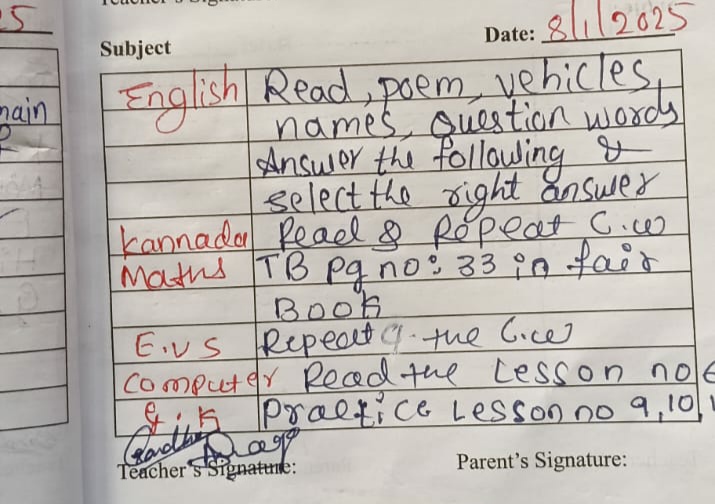 5
Date: 8/1/2025
Subject
English Read, poem, vehicles,
names, Question words
Answer the following &
select the right answer
Kannada Read & Repeat C.w
Maths TB pg no: 33 in fair
Book
E.V.S Repeat the C.w
Computer Read the Lesson no 6
G.K Practice Lesson no 9, 10, 1
Teacher's Signature: Parent's Signature: